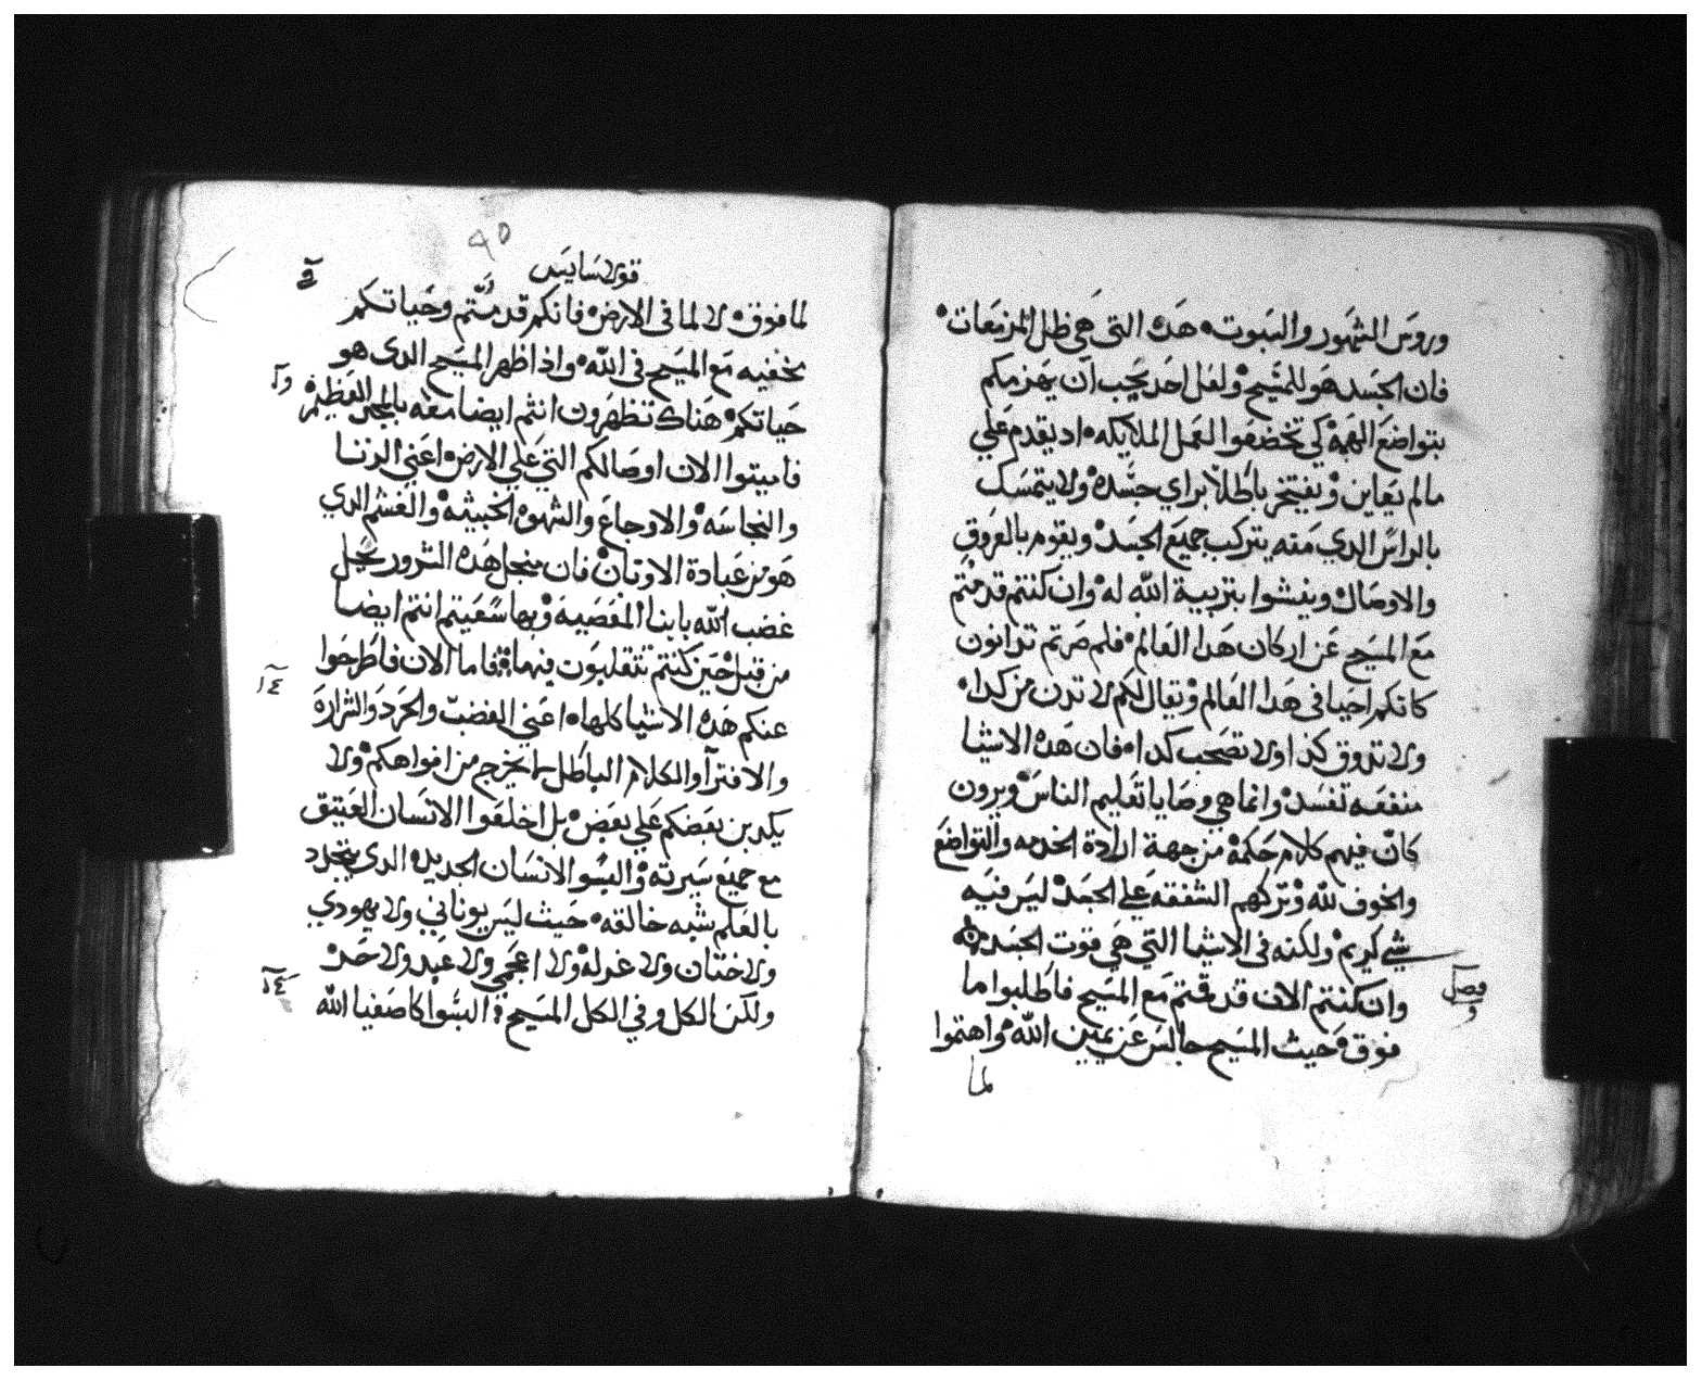 وروس الشهور والسبوت هده التى هي ظل المزمعات
فان الجسد هو للمسيح ولعل احد يحب ان يهزمكم
بتواضع الهمه كي تخضعوا لعمل الملايكه اد يقدم علي
مالم يعاين ويفتخر باطلا براي جسده ولا يتمسك
بالراس الدي منه يتركب جميع الجسد ويقوم بالعروق
والاوصال وينشوا بتربية الله له وان كنتم قدمتم
مع المسيح عن اركان هدا العالم فلم صرتم تدانون
كانكم احيا في هدا العالم ويقال لكم لا تدن من كدا
ولا تدوق كذا ولا تصحب كدا فان هده الاشيا
منفعه تفسد وانما هي وصايا تعليم الناس ويرون
كان فيهم كلام حكمة من جهة ارادة الخدمه والتواضع
والخوف لله وتركهم الشفقه علي الجسد ليس فيه
شي كريم ولكنه في الاشيا التي هي قوت الجسد
فصل و
وان كنتم الان قد قمتم مع المسيح فاطلبوا ما
فوق حيث المسيح جالس عن يمين الله واهتموا
لما
قولاسايس
لما فوق لا لما في الارض فانكم قد متم وحياتكم
مخفيه مع المسيح في الله واذا ظهر المسيح الدى هو
حياتكم هناك تظهرون انتم ايضا معه بالمجد العظيم
فاميتوا الان اوصالكم التي علي الارض اعني الزنا
والنجاسه والاوجاع والشهوه الخبيثه والغشم الدي
هو من عبادة الاوتان فان منجل هده الشرور يحل
غضب الله بابنا المعصية وبها سعيتم انتم ايضا
من قبل حين كنتم تتقلبون فيها فاما الان فاطرحوا
عنكم هده الاشيا كلها اعني الغضب والحرد والشرارة
والافترا والكلام الباطل لا يخرج من افواهكم ولا
يكدبن بعضكم علي بعض بل اخلعوا الانسان العتيق
مع جميع سيرته والبسوا الانسان الجديد الدي يتجدد
بالعلم شبه خالقه حيث ليس يوناني ولا يهودي
ولا ختان ولا غرله ولا اعجمي ولا عبد ولا حر
ولكن الكل وفي الكل المسيح البسوا كاصفيا الله